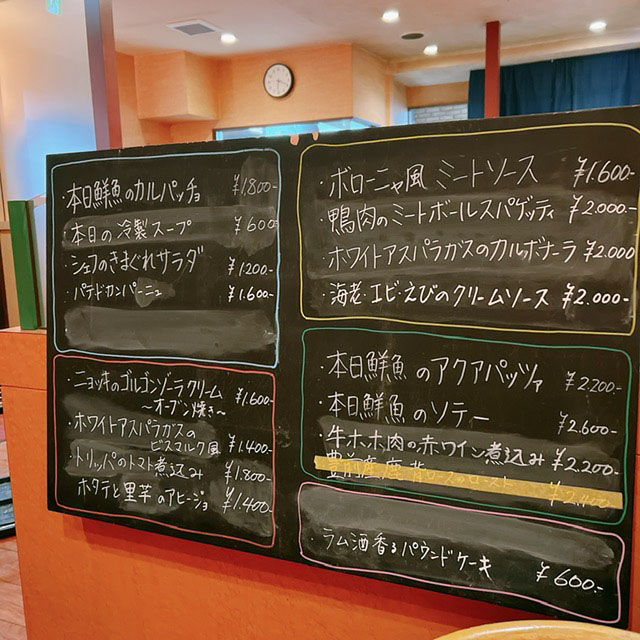 本日鮮魚のカルパッチョ ¥1.800-
本日の冷製スープ ¥600-
シェフのきまぐれサラダ ¥1.200-
パテドカンパーニュ ¥1.600-
・ニョッキのゴルゴンゾーラクリーム ¥1.600-
〜オーブン焼き〜
・ホワイトアスパラガスの
ビスマルク風 ¥1.400-
・トリッパのトマト煮込み ¥1.800-
ホタテと里芋のアヒージョ ¥1.400-
・ボローニャ風 ミートソース ¥1.600-
・鴨肉のミートボールスパゲッティ ¥2.000-
・ホワイトアスパラガスのカルボナーラ ¥2.000
・海老・エビ・えびのクリームソース ¥2.000-
・本日鮮魚のアクアパッツァ ¥2.200-
・本日鮮魚のソテー ¥2.600-
・牛ホホ肉の赤ワイン煮込み ¥2.200-
豊前産鹿背ロースのロースト ¥2.400-
・ラム酒香るパウンドケーキ ¥600-